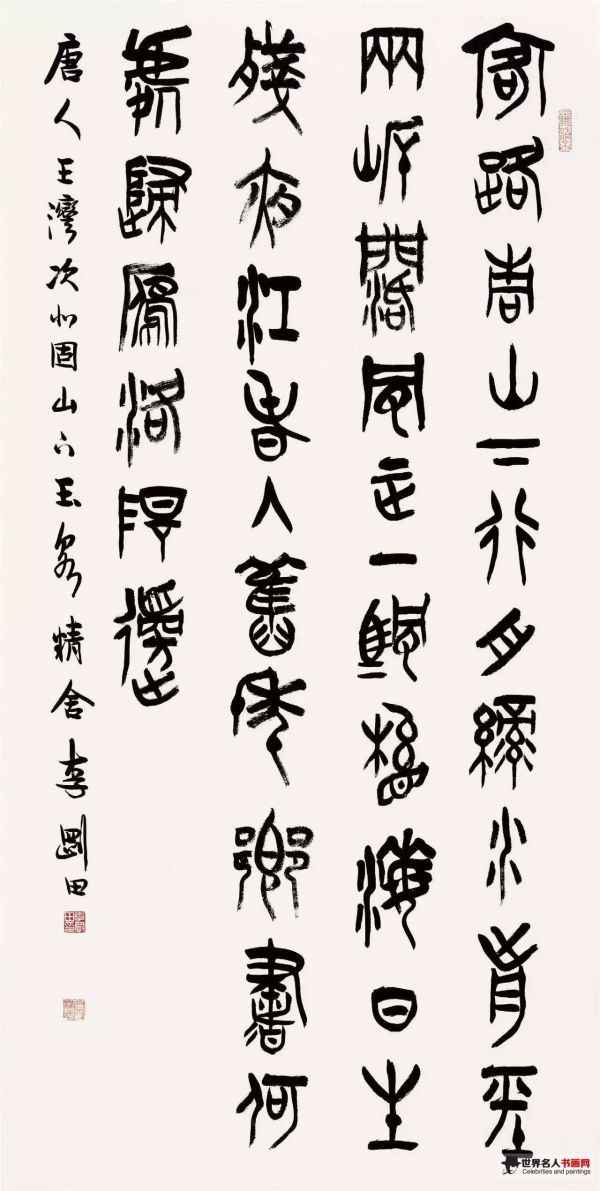 客路青山下行舟綠水前平
兩岸闊風正一帆懸海日生
殘夜江春入舊年鄉書何
處歸雁洛陽邊
唐人王灣次北固山下玉泉精舍李剛田
世界名人书画网
Celebrities and paintings